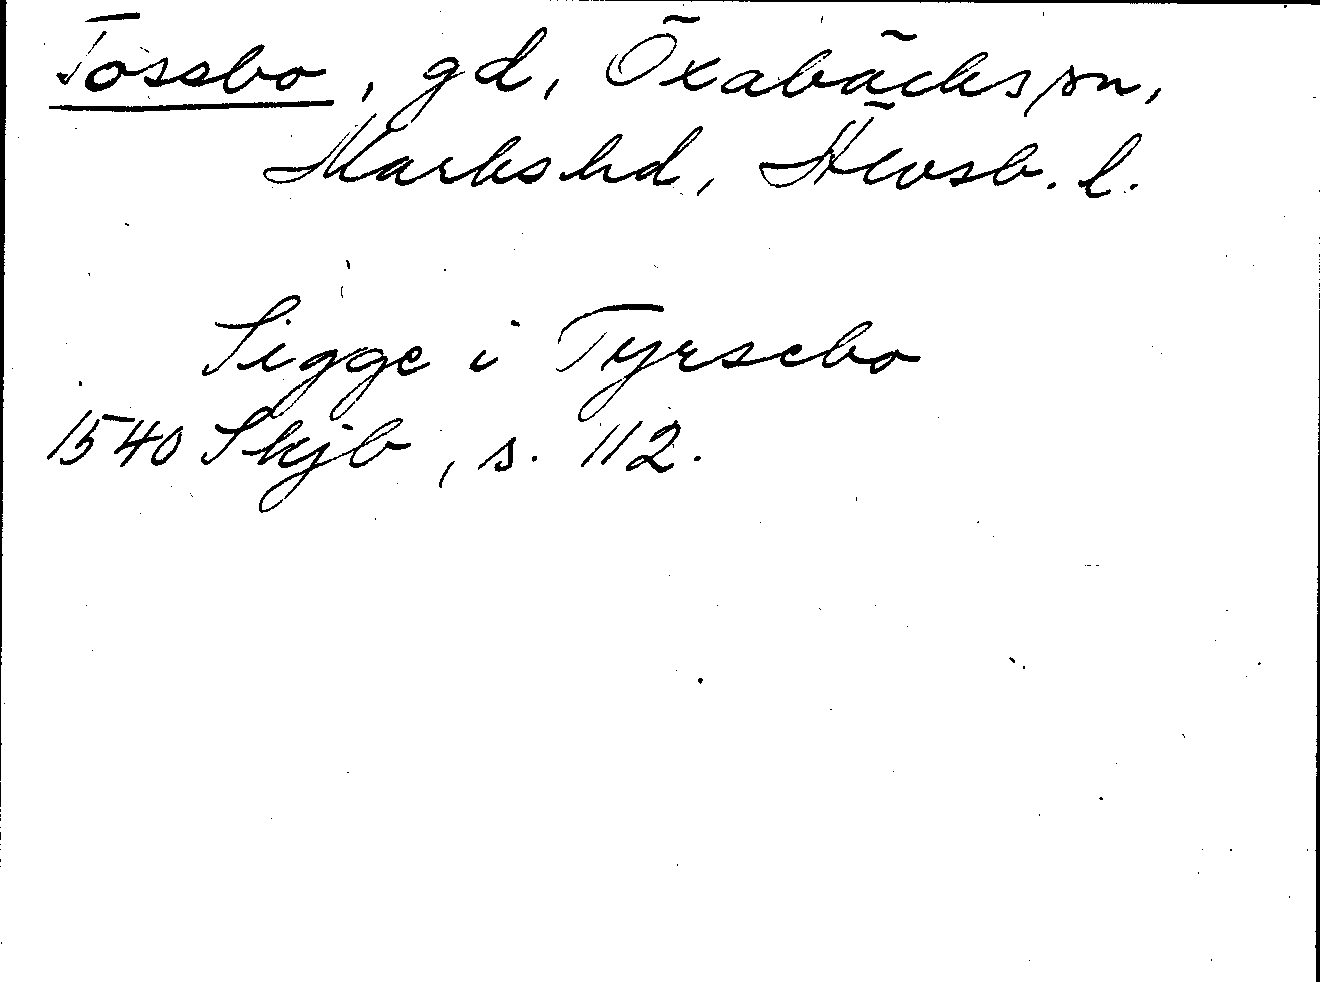 Tossbo, gd, Öxabäcks sn,
Marks hd, Älvsb. l.
Sigge i Tyrsebo
1540 Skjb, s. 112.